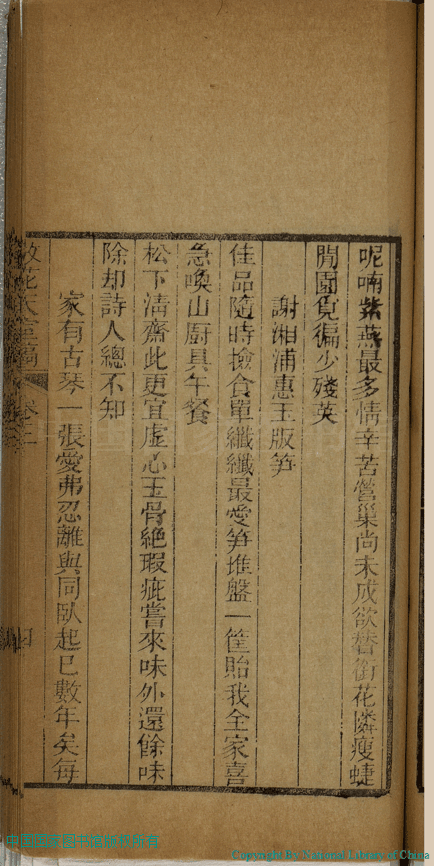 呢喃紫燕最多情辛苦營巢尚未成欲替銜花憐瘦蜨
閒園覓徧少殘英
謝湘浦惠玉版笋
佳品隨時撿食單纖纖最愛笋堆盤一筐貽我全家喜
急喚山厨具午餐
松下清齋此更宜虛心玉骨絕瑕疵嘗來味外還餘味
除却詩人總不知
家有古琴一張愛弗忍離與同臥起已數年矣每
卷二
Copyright By National Library of China